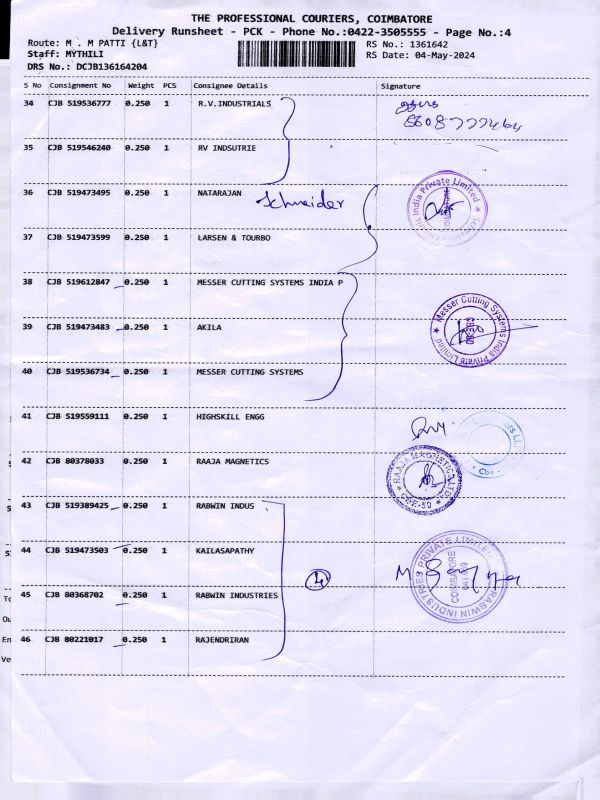 THE PROFESSIONAL COURIERS, COIMBATORE
Delivery Runsheet - PCK - Phone No.:0422-3505555 - Page No.:4
Route: M . M PATTI {L&T} RS No.: 1361642
Staff: MYTHILI RS Date: 04-May-2024
DRS No.: DCJB136164204
S No Consignment No Weight PCS Consignee Details Signature
34 CJB 519536777 0.250 1 R.V.INDUSTRIALS
35 CJB 519546240 0.250 1 RV INDSUTRIE
36 CJB 519473495 0.250 1 NATARAJAN Schneider
37 CJB 519473599 0.250 1 LARSEN & TOURBO
38 CJB 519612847 0.250 1 MESSER CUTTING SYSTEMS INDIA P
39 CJB 519473483 0.250 1 AKILA Messer Cutting Systems India Private Limited
40 CJB 519536734 0.250 1 MESSER CUTTING SYSTEMS
41 CJB 519559111 0.250 1 HIGHSKILL ENGG
42 CJB 80378033 0.250 1 RAAJA MAGNETICS
43 CJB 519389425 0.250 1 RABWIN INDUS
44 CJB 519473503 0.250 1 KAILASAPATHY RABWIN INDUSTRIES PRIVATE LIMITED COIMBATORE
45 CJB 80368702 0.250 1 RABWIN INDUSTRIES 4
46 CJB 80221017 0.250 1 RAJENDRIRAN